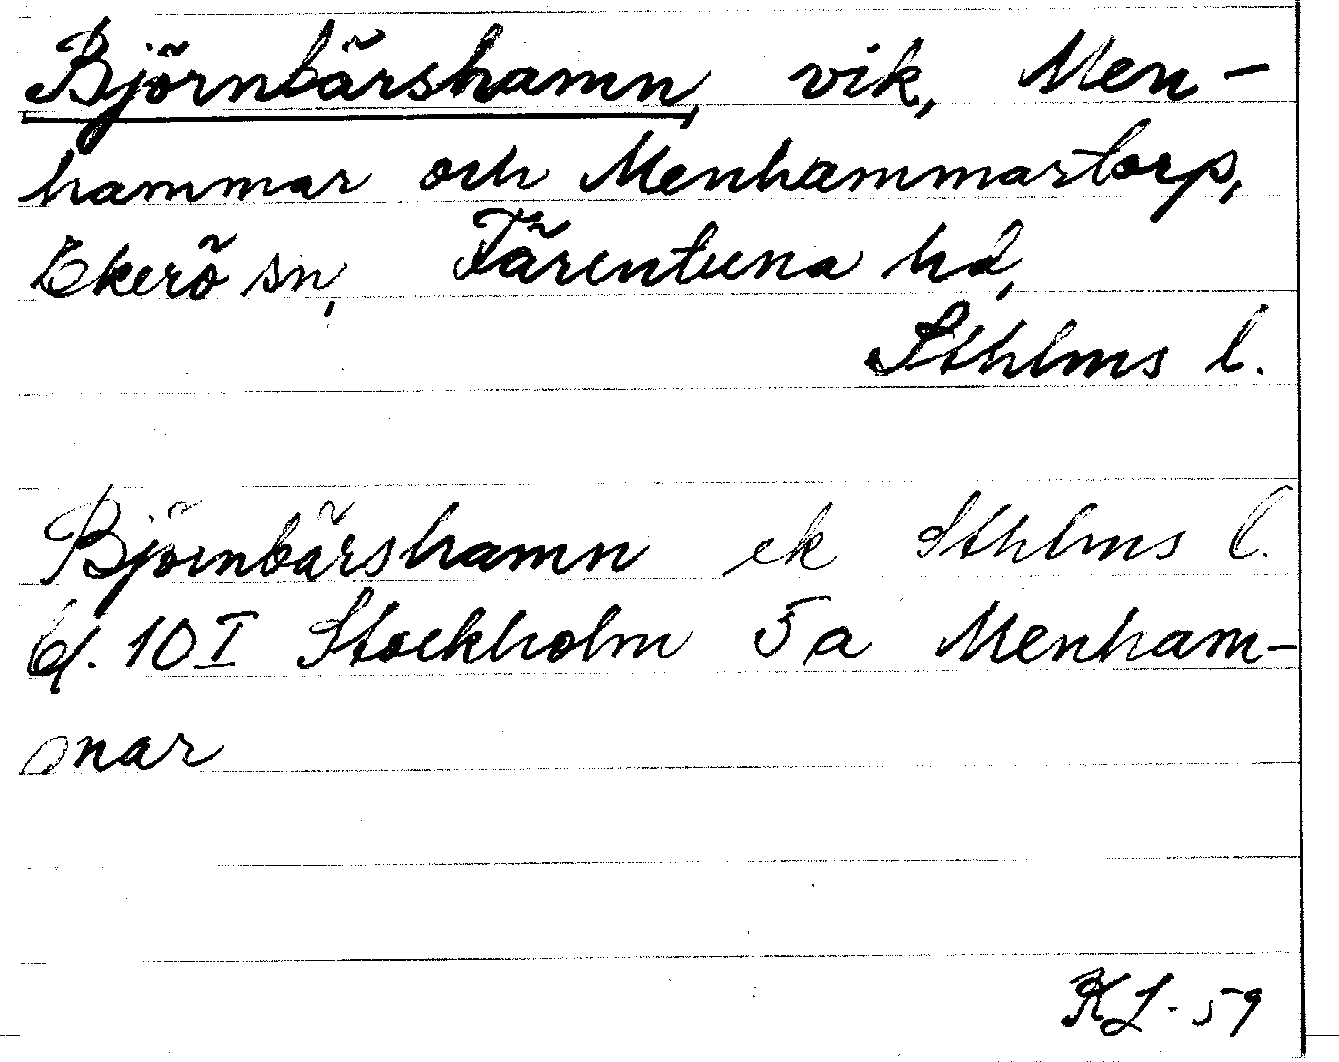 Björnbärshamn, vik, Men-
hammar och Menhammartorp,
Ekerö sn, Färentuna hd,
Sthlms l.
Björnbärshamn ek Sthlms l.
bl. 10 I Stockholm 5 a Menham-
mar
KL-59